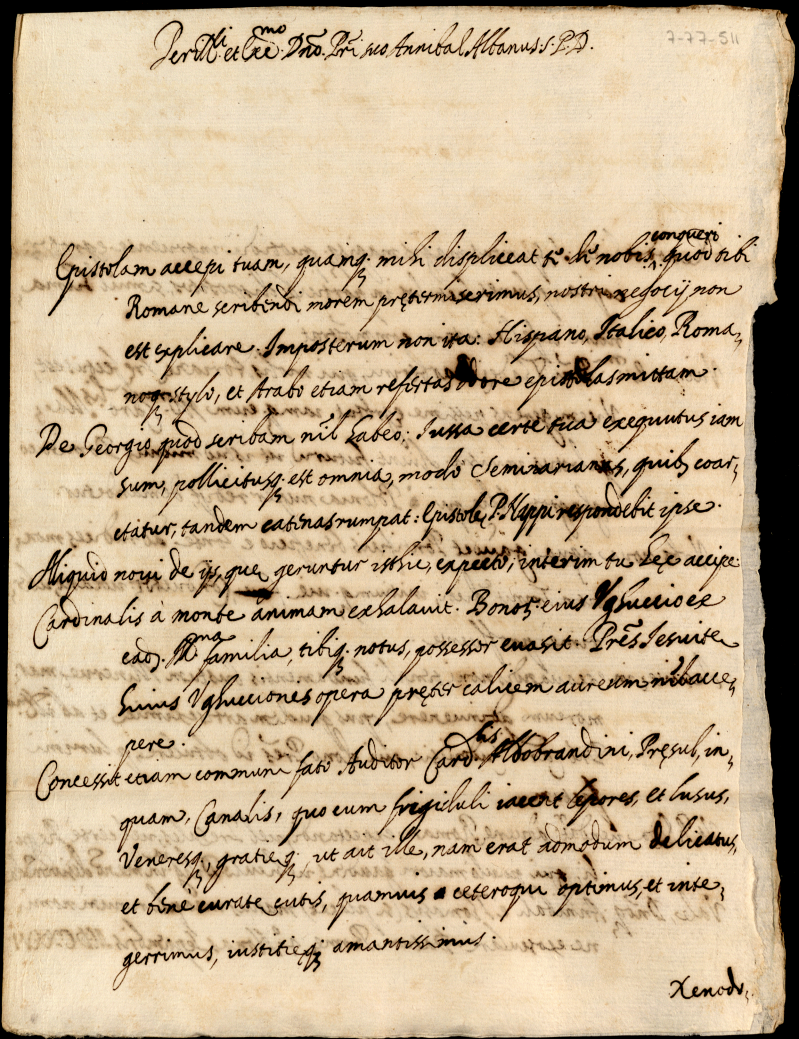 PerIll.ri et Exc.mo Dño Pri suo Annibal Albanus S. P. D.
7-77-511
Epistolam accepi tuam, quamq; mihi displiceat te de nobis conqueri quod tibi
Romane scribendi morem prętermiserimus, nostri negocij non
est explicare. Imposterum non ita: Hispano, Italico, Roma-
noq; stylo, et Arabo etiam refertas odore epistolas mittam.
De Georgio quod scribam nīl habeo; Iussa certe tua exequutus iam
sum, pollicitusq; est omnia, modo Seminarianas, quib; coar-
ctatur, tandem catenas rumpat: Epistolę P. Nappi respondebit ipse.
Aliquid novi de ijs, quę geruntur isthic, expecto; interim tu hęc accipe
Cardinalis à monte animam exhalavit. Bonoȝ eius Vghuccio ex
ead. Ill.ma familia, tibiq; notus, possessor evasit. Prēs Iesuitę
huius Vghuccionis opera pręter calicem aureum nihil acce-
pere.
Concessit etiam communi fato Auditor Card.lis Aldobrandini, Pręsul, in-
quam, Canalis, quo cum frigiduli iacent lepores, et lusus,
Veneresq;, gratięq;, ut ait ille, nam erat admodum delicatus,
et benè curatę cutis, quamvis ceteroqui optimus, et inte-
gerrimus, iustitięq; amantissimus.
Xenodo-